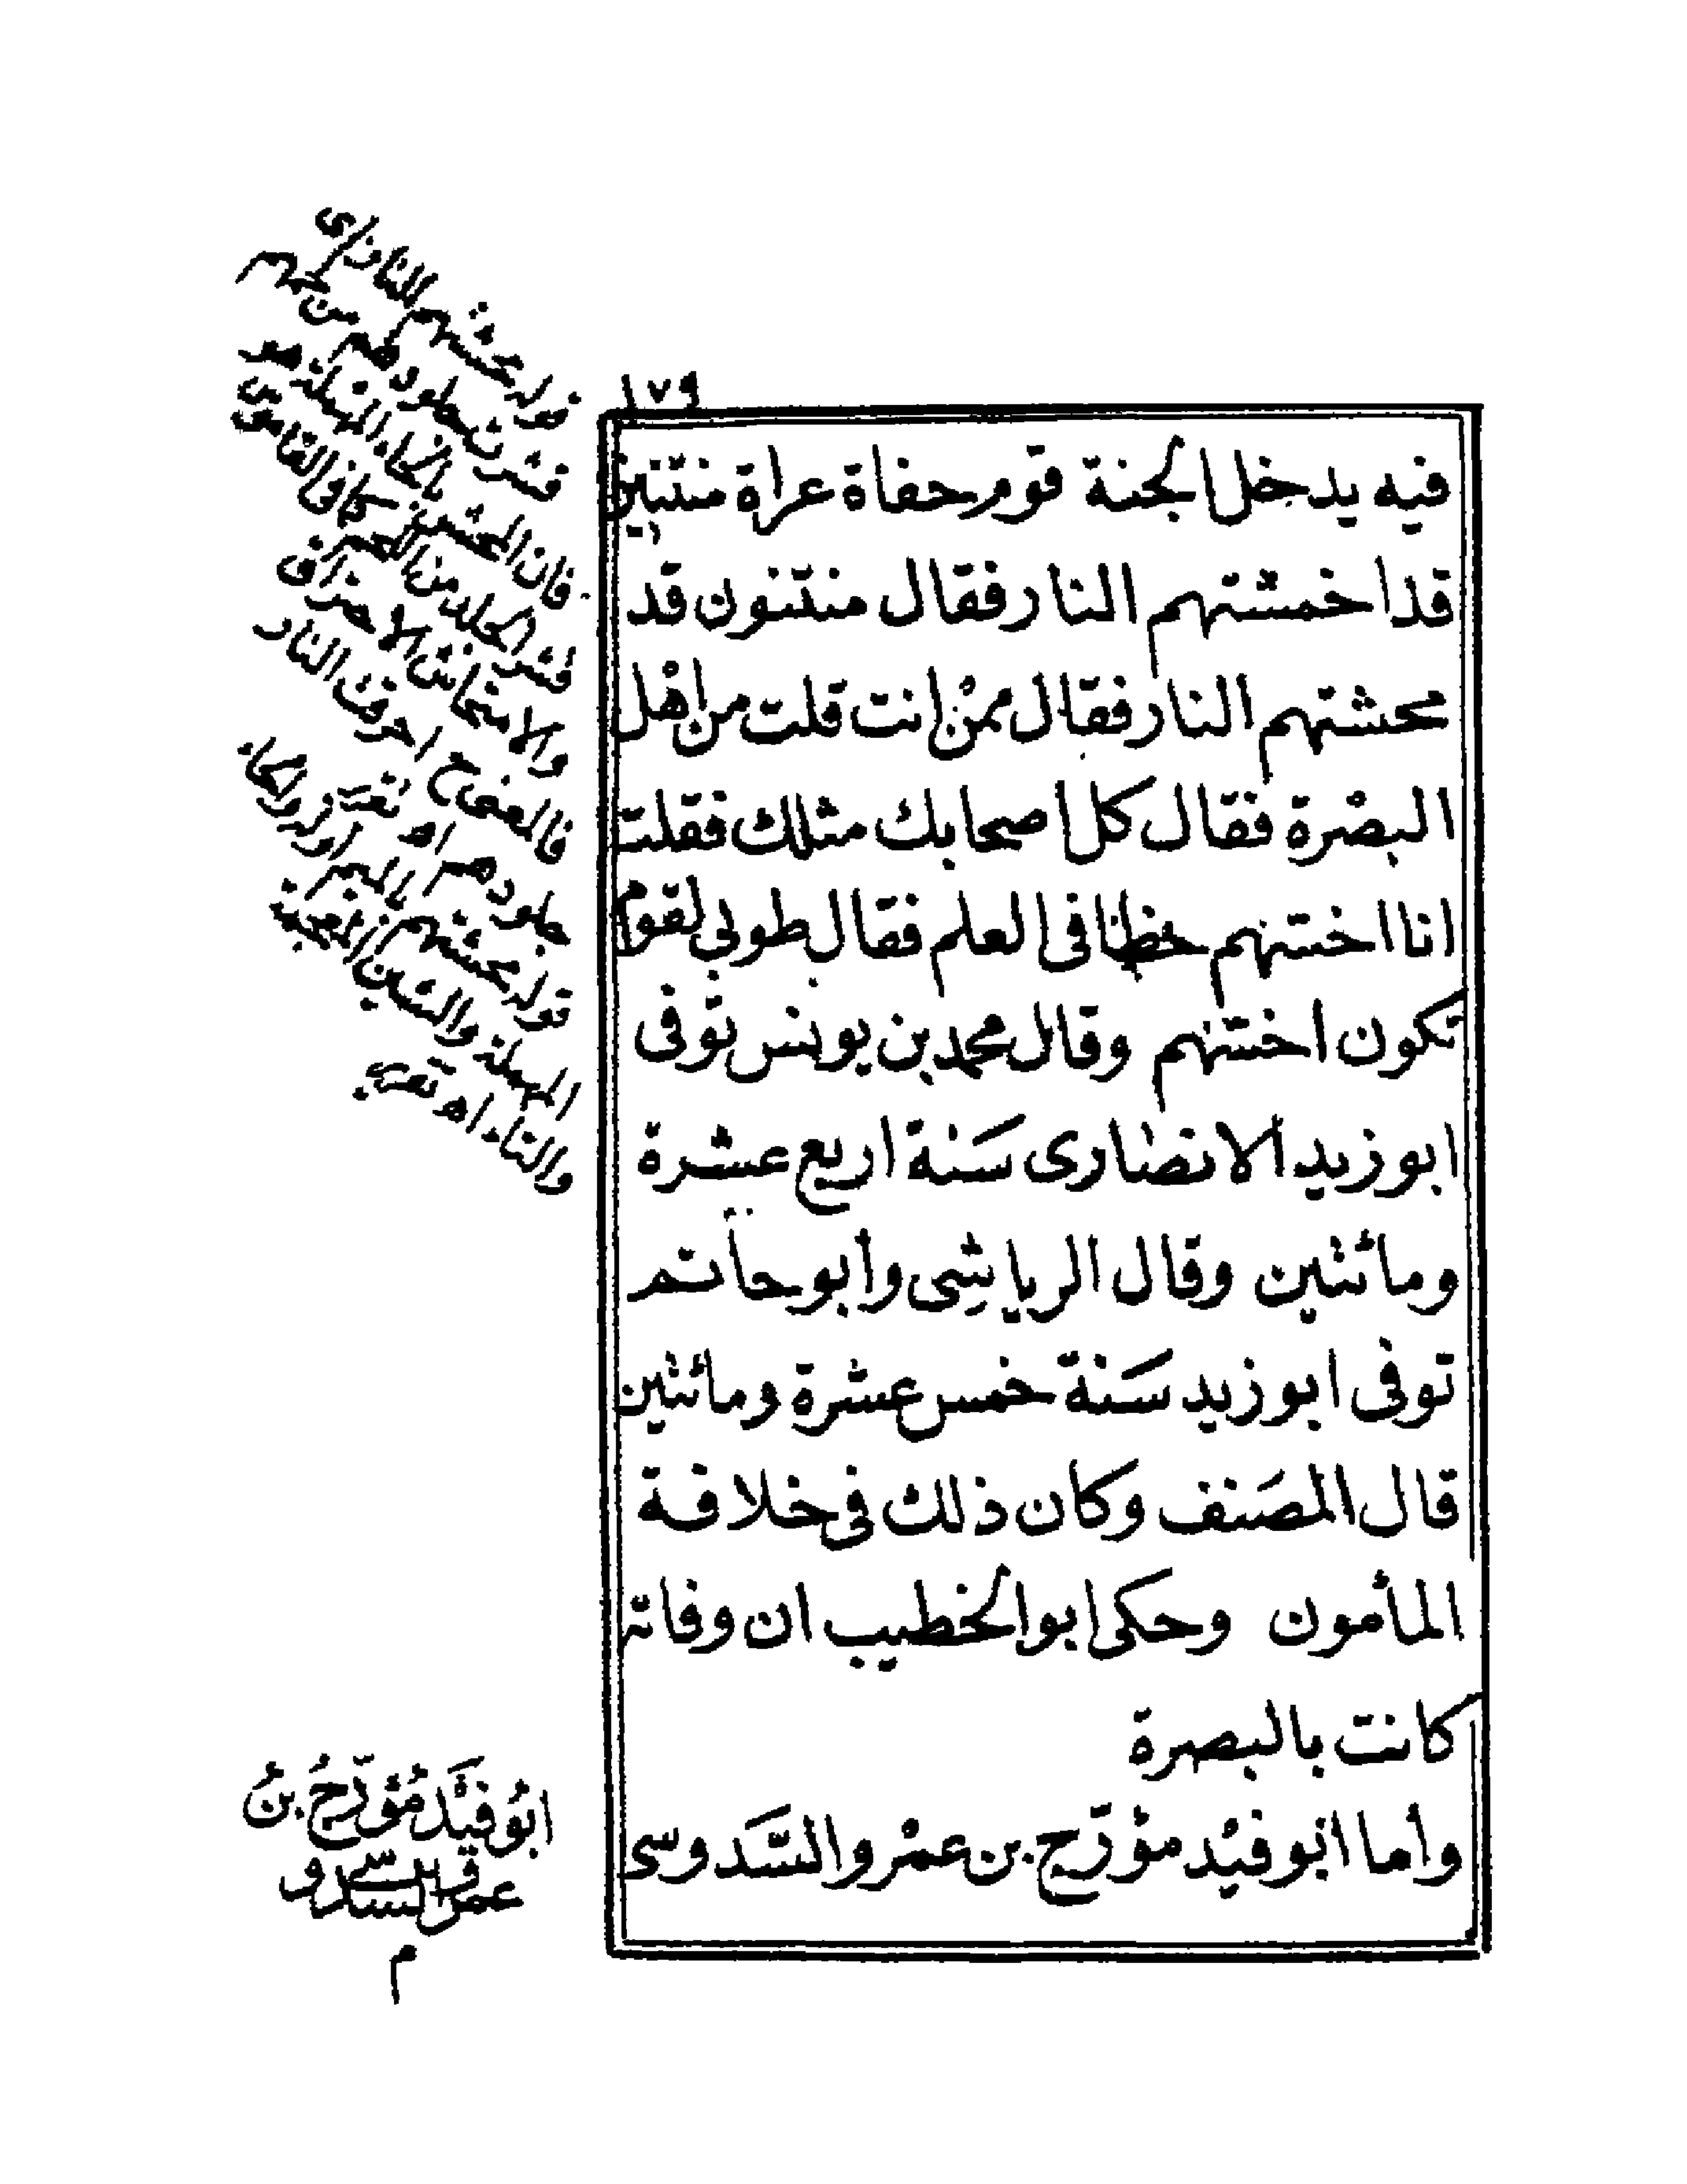 ١٧٩
فيه يدخل الجنة قوم حفاة عراة منتنين
قد اخمشتهم النار فقال منتنون قد
محشتهم النار فقال ممنْ انت قلت من اهْل
البصْرة فقال كل اصحابك مثلك فقلت
انا اخسّهم حظا فى العلم فقال طوبى لقوم
تكون اخسّهم وقال محمد بن يونس توفى
ابو زيد الانصارى سَنة اربع عشرة
ومائتين وقال الرياشِى وأبو حاتم
توفى ابو زيد سَنة خمس عشرة ومائتين
قال المصَنف وكان ذلك فى خلافة
المأمون وحكى ابو الخطيب ان وفاته
كانت بالبصرة
وأما ابو فيْد مؤرّج بن عمْرو السَّدوسى
قوله محشتهم النار اى
قشرت جلودهم من
فان المحش بالحاء المهملة هو
قشر الجلد من اللحم كما فى القاموس
والامتحاش الاحتراق
احرقت النار
جلودهم اهـ
قوله محشتهم بالميم اوله والحاء
المهملة والشين المعجمة
والتاء اهـ
ابُو فَيْد مُؤرّجُ بنُ
عمرو السدوسى
م